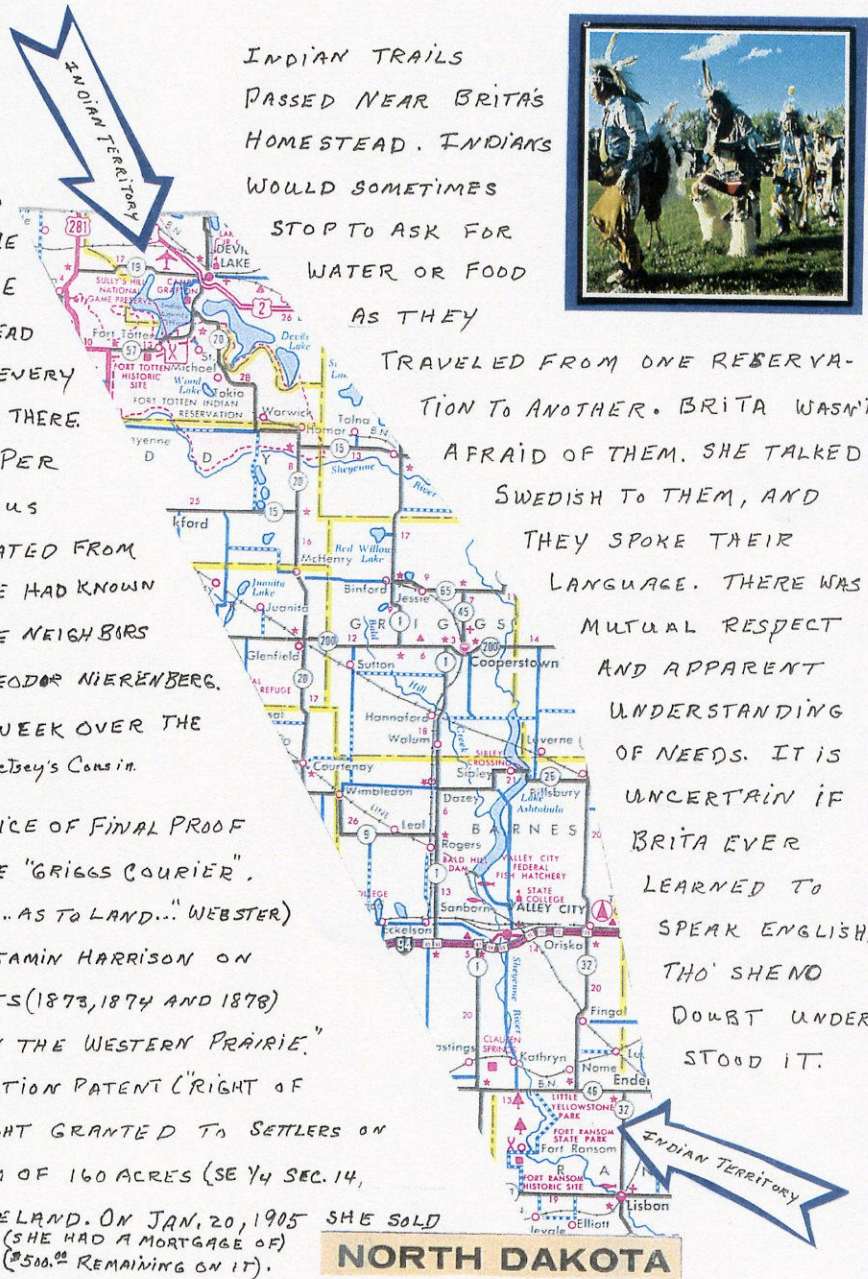 INDIAN TERRITORY
INDIAN TRAILS
PASSED NEAR BRITA'S
HOMESTEAD. INDIANS
WOULD SOMETIMES
STOP TO ASK FOR
WATER OR FOOD
AS THEY
TRAVELED FROM ONE RESERVA-
TION TO ANOTHER. BRITA WASN'T
AFRAID OF THEM. SHE TALKED
SWEDISH TO THEM, AND
THEY SPOKE THEIR
LANGUAGE. THERE WAS
MUTUAL RESPECT
AND APPARENT
UNDERSTANDING
OF NEEDS. IT IS
UNCERTAIN IF
BRITA EVER
LEARNED TO
SPEAK ENGLISH,
THO' SHE NO
DOUBT UNDER
STOOD IT.
EAD
EVERY
THERE.
PER
US
ATED FROM
E HAD KNOWN
E NEIGHBORS
EODOR NIERENBERG.
WEEK OVER THE
etsey's Cousin.
ICE OF FINAL PROOF
E "GRIGGS COURIER".
... AS TO LAND..." WEBSTER)
JAMIN HARRISON ON
TS (1873, 1874 AND 1878)
THE WESTERN PRAIRIE."
TION PATENT ("RIGHT OF
HT GRANTED TO SETTLERS ON
OF 160 ACRES (SE 1/4 SEC. 14,
ELAND. ON JAN. 20, 1905 SHE SOLD
(SHE HAD A MORTGAGE OF)
($500.00 REMAINING ON IT).
281
B.N.
DEVIL
LAKE
17
19
2
26
SULLY'S HILL
NATIONAL
GAME PRESERVE
CAMP
GRAFTON
Fort Totten
57
FORT TOTTEN
HISTORIC
SITE
20
St.
Michael
Devils
Lake
Wood
Lake
Tokio
28
FORT TOTTEN INDIAN
RESERVATION
Warwick
Hamar
Tolna
B.N.
15
13
yenne
D D Y
Sheyenne
River
8
20
25
15
kford
16
McHenry
Red Willow
Lake
17
Binford
Jessie
9
65
45
7
Juanita
Lake
Juanita
1
GRIGGS
Bald
Hill
Creek
200
12
6
3
200
14
Glenfield
Sutton
Cooperstown
20
17
REFUGE
Hannaford
18
Walum
SIBLEY
CROSSING
Luverne
Sibley
21
26
Pillsbury
Courtenay
Wimbledon
Dazey
Lake
Ashtabula
26
LINE
Leal
9
6
BARNES
20
Rogers
BALD HILL
DAM
VALLEY CITY
FEDERAL
FISH HATCHERY
1
13
STATE
COLLEGE
Sanborn
VALLEY CITY
Eckelson
94
5
14
Oriska
1
32
20
20
Sheyenne River
Fingal
CLAUSEN
SPRINGS
Kathryn
B.N.
Nome
Ende
46
LITTLE
YELLOWSTONE
PARK
32
FORT RANSOM
STATE PARK
Fort Ransom
FORT RANSOM
HISTORIC SITE
R A N
19
Lisbon
Elliott
INDIAN TERRITORY
NORTH DAKOTA